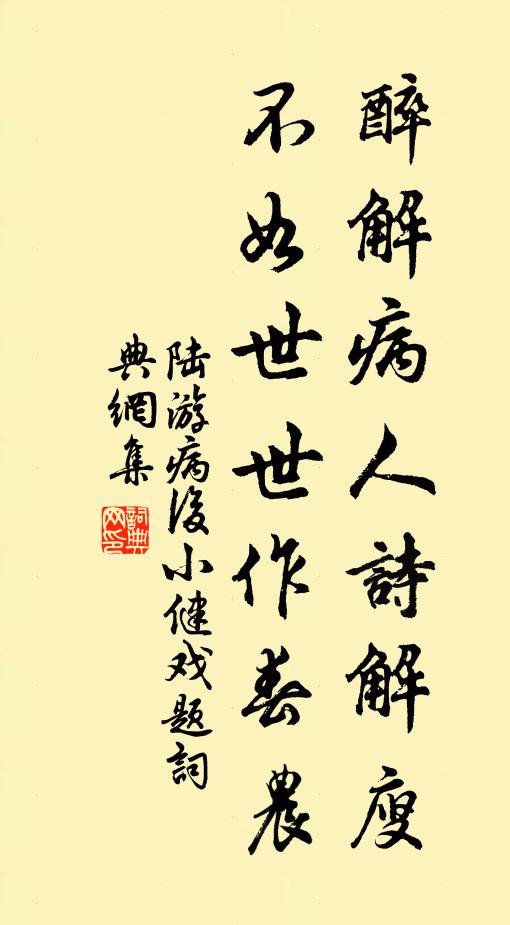 醉解病人詩解廋
不如世世作春農
陆游病後小健戏题詞
典網集
詞典网印